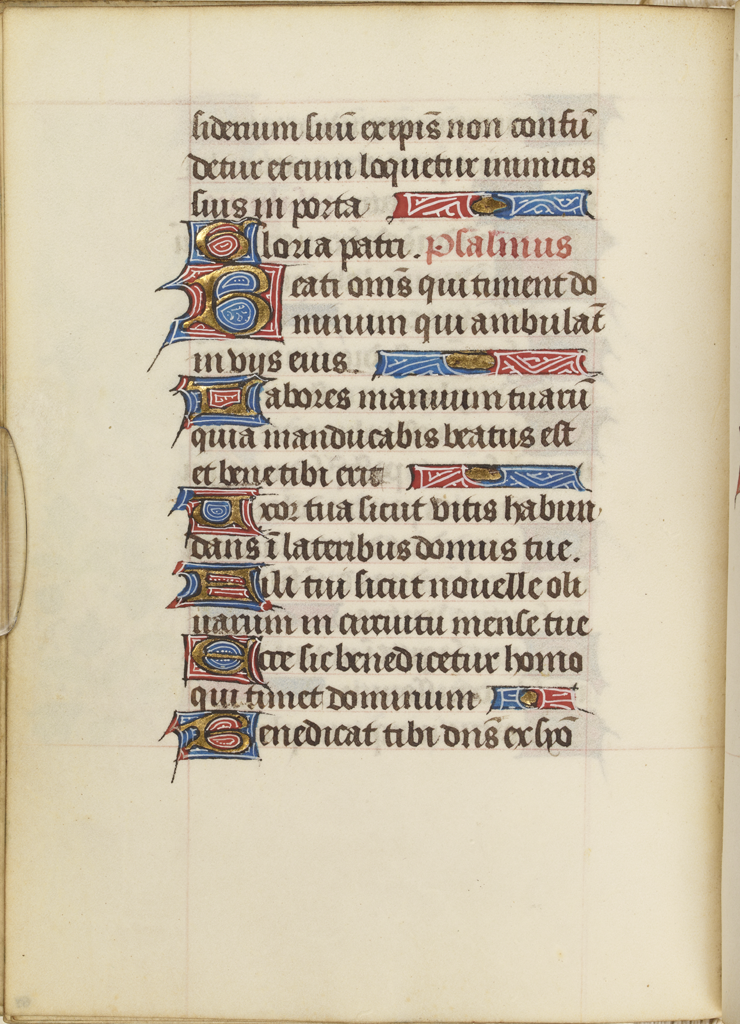 siderium suū ex ipīs non confū
detur et cum loquetur inimicis
suis in porta
Gloria patri. Psalmus
Beati om̄s qui timent do
minum qui ambulāt
in viis eius.
Labores manuum tuarū
quia manducabis beatus est
et bene tibi erit
Uxor tua sicut vitis habun
dans ī lateribus domus tue.
Filii tui sicut nouelle oli
uarum in circuitu mense tue
Ecce sic benedicetur homo
qui timet dominum
Benedicat tibi dn̄s ex syō